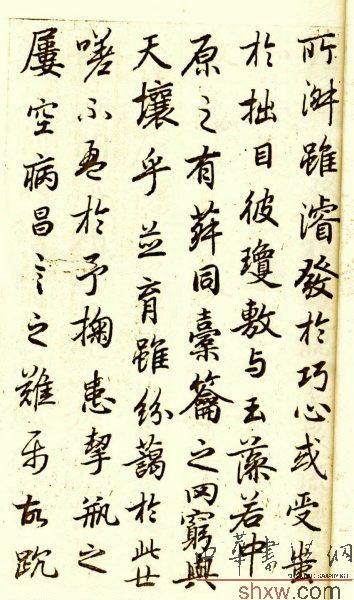 所淑雖濬發於巧心或受蚩
於拙目彼瓊敷与玉藻若中
原之有菽同橐籥之罔窮與
天壤乎並育雖紛藹於此世
嗟不盈於予掬患挈瓶之
屢空病昌言之難屬故踸
中華書法網
shxw.com